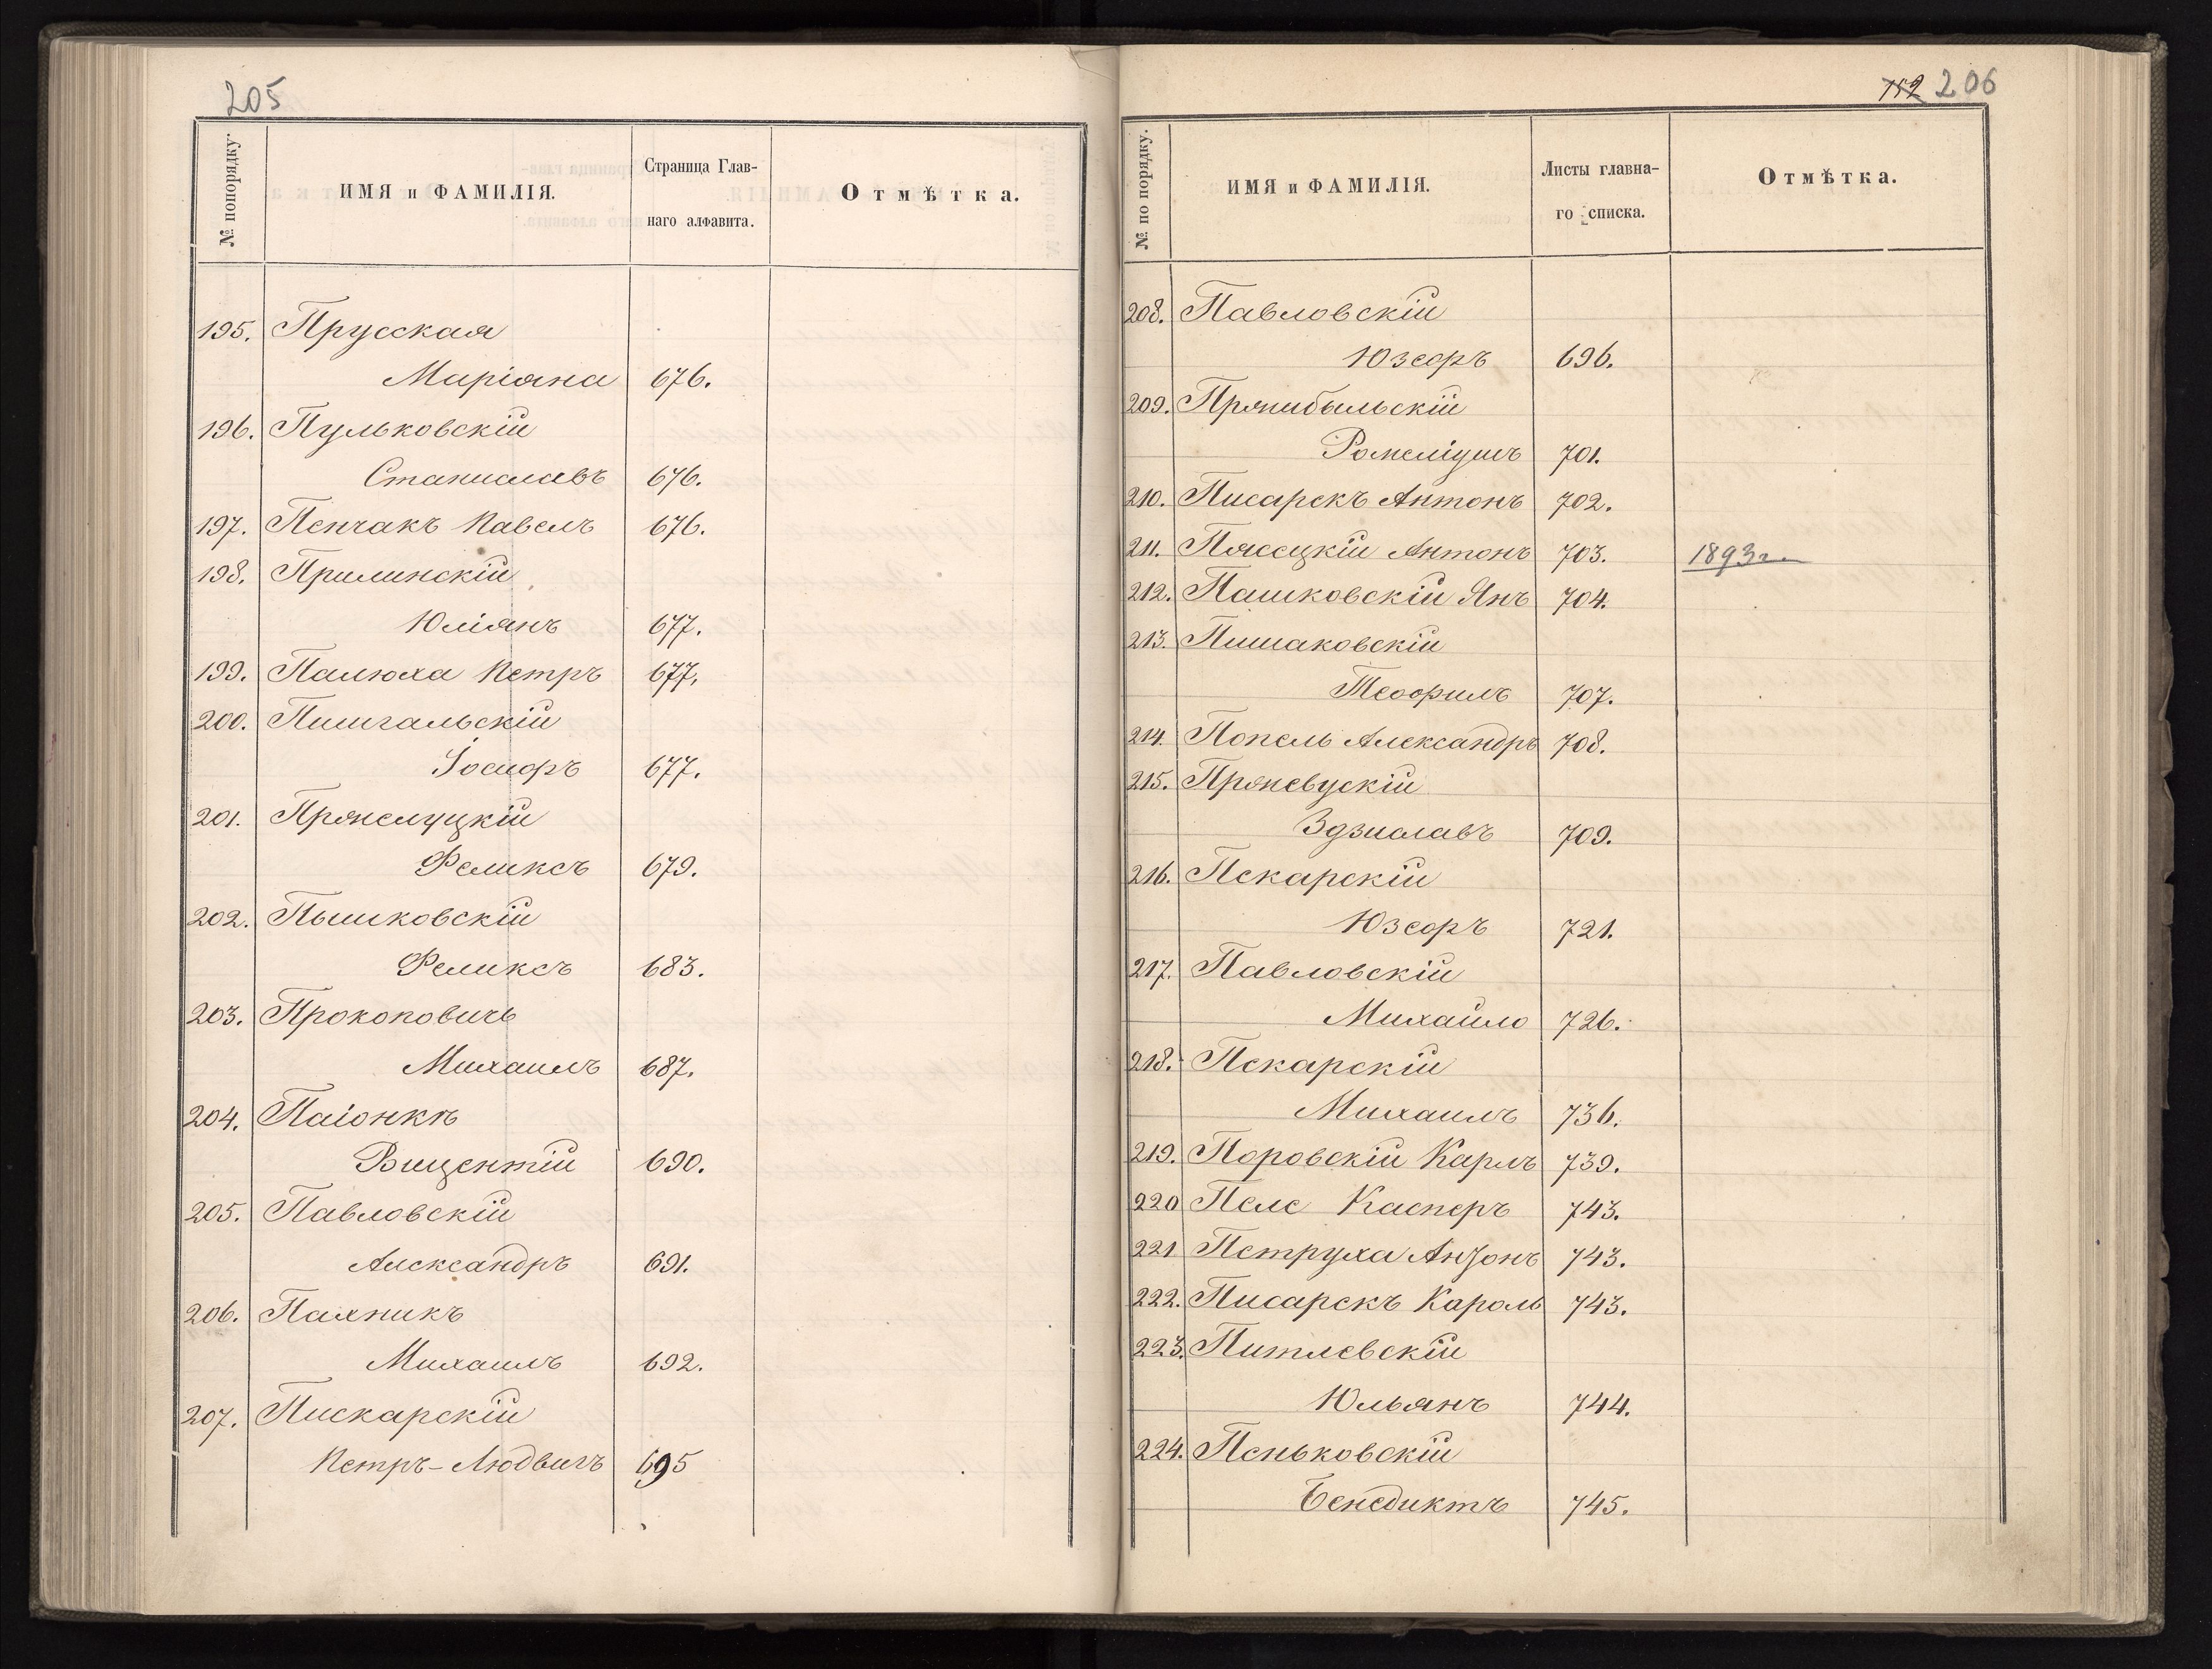 205
№ попорядку.
ИМЯ и ФАМИЛІЯ.
Страница Глав-
наго алфавита.
Отмѣтка.
195. Прусская
Маріяна 676.
196. Пульковскій
Станиславъ 676.
197. Пенчакъ Павелъ 676.
198. Прилинскій
Юліянъ 677.
199. Палюха Петръ 677.
200. Пишгальскій
Іосифъ 677.
201. Пржелуцкій
Феликсъ 679.
202. Пышковскій
Феликсъ 683.
203. Прокоповичь
Михаилъ 687.
204. Паіонкъ
Вицентій 690.
205. Павловскій
Александръ 691.
206. Пахникъ
Михаилъ 692.
207. Пискарскій
Петръ-Людвигъ 695
752 206
№ по порядку.
ИМЯ и ФАМИЛІЯ.
Листы главна-
го списка.
Отмѣтка.
208. Павловскій
Юзефъ 696.
209. Пржибыльскій
701.
210. Писарекъ Антонъ 702.
211. Пясецкій Антонъ 703. 1893г.
212. Пашковскій Янъ 704.
213. Пишаковскій
Теофилъ 707.
214. Попель Александръ 708.
215. Пржевускій
Здзиславъ 709.
216. Пекарскій
Юзефъ 721.
217. Павловскій
Михайло 726.
218. Пекарскій
Михаилъ 736.
219. Поровскій Карлъ 739.
220 Пеле Касперъ 743.
221 Петруха Антонъ 743.
222. Писарекъ Кароль 743.
223. Питлевскій
Юльянъ 744.
224. Пеньковскій
Бенедиктъ 745.